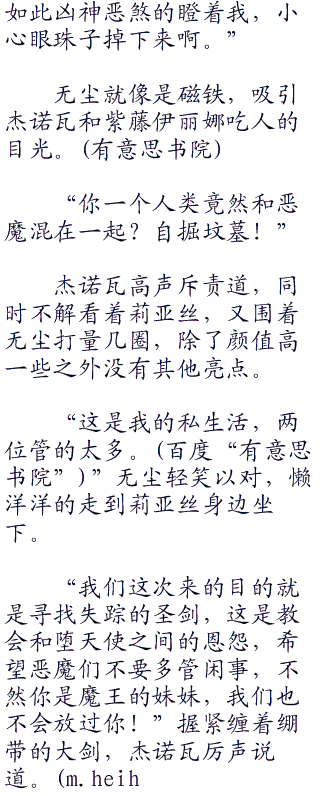 如此凶神恶煞的瞪着我，小
心眼珠子掉下来啊。”
无尘就像是磁铁，吸引
杰诺瓦和紫藤伊丽娜吃人的
目光。(有意思书院)
“你一个人类竟然和恶
魔混在一起？自掘坟墓！”
杰诺瓦高声斥责道，同
时不解看着莉亚丝，又围着
无尘打量几圈，除了颜值高
一些之外没有其他亮点。
“这是我的私生活，两
位管的太多。(百度“有意思
书院”)”无尘轻笑以对，懒
洋洋的走到莉亚丝身边坐
下。
“我们这次来的目的就
是寻找失踪的圣剑，这是教
会和堕天使之间的恩怨，希
望恶魔们不要多管闲事，不
然你是魔王的妹妹，我们也
不会放过你！”握紧缠着绷
带的大剑，杰诺瓦厉声说
道。(m.heih